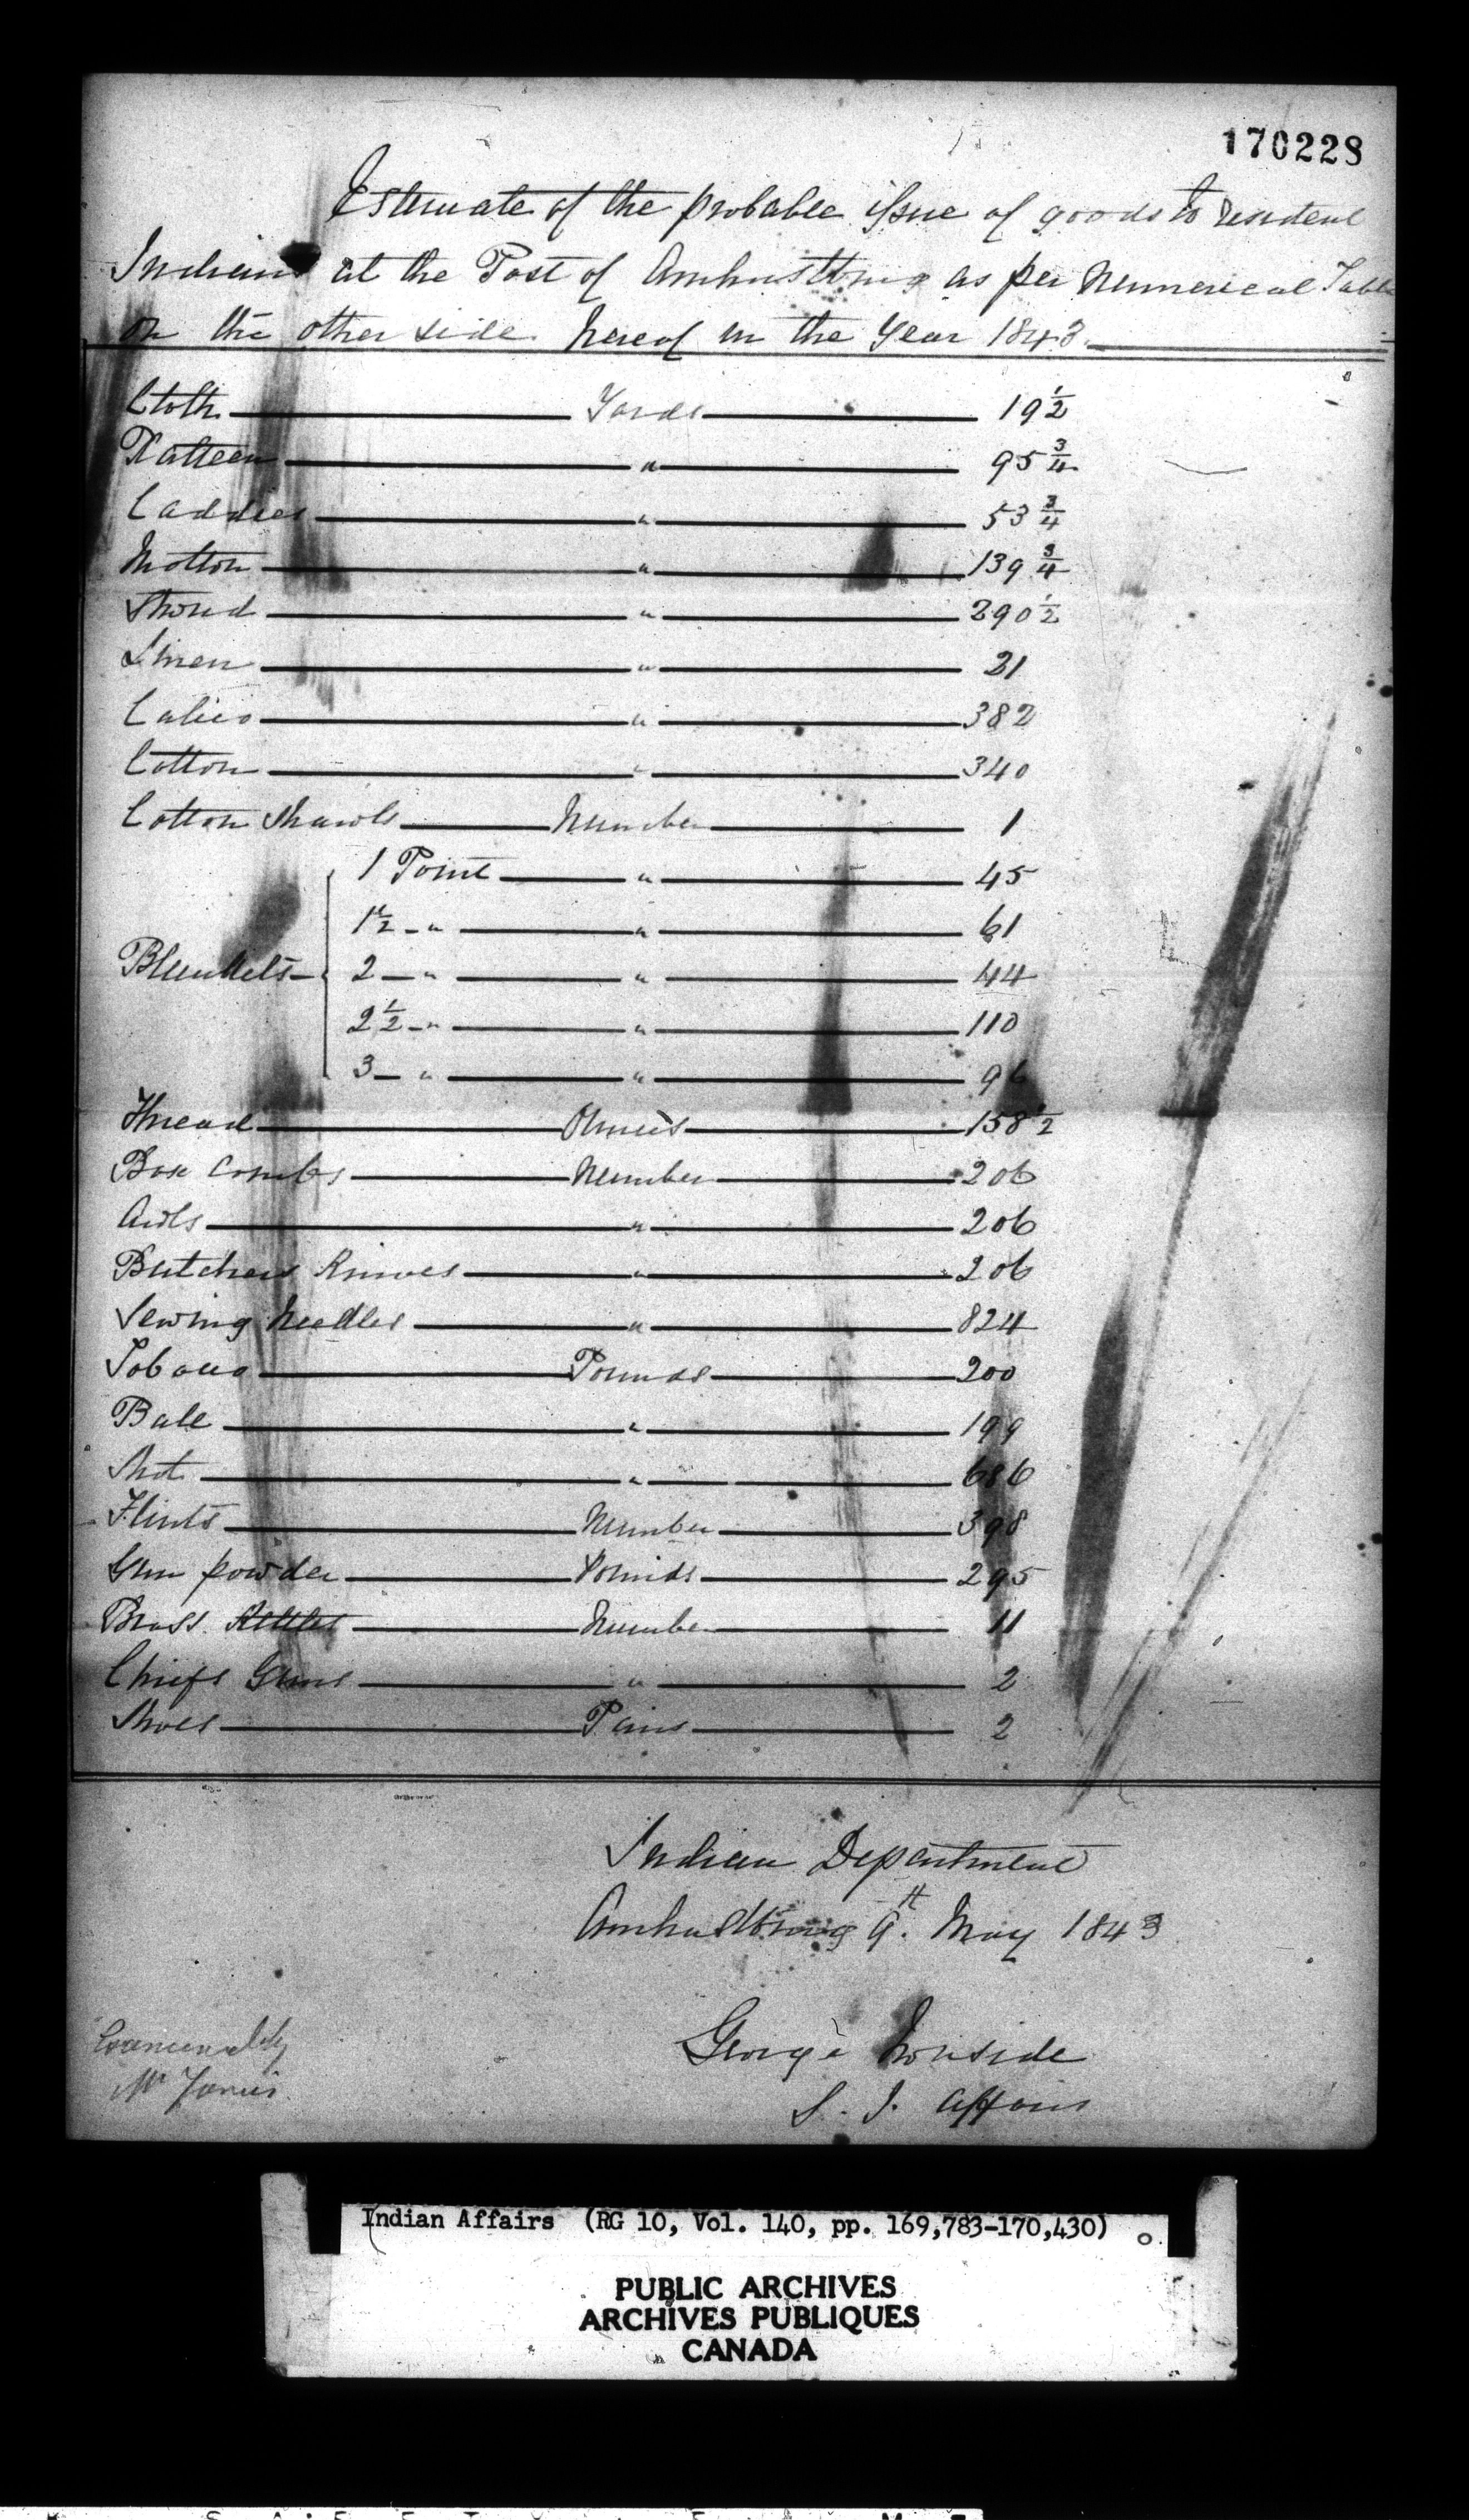 170228
Estimate of the probable issue of goods to resident
Indians at the Post of Amherstburg as per Numerical Table
on the other side hereof in the Year 1843.
Cloth Yards 19 1/2
Ratteen " 95 3/4
Caddies " 53 3/4
Molton " 139 3/4
Stroud " 290 1/2
Linen " 21
Calico " 382
Cotton " 340
Cotton Shawls Number 1
1 Point " 45
1 1/2 " " 61
Blankets 2 " " 44
2 1/2 " " 110
3 " " 96
Thread Ounces 158 1/2
Box Combs Number 206
Awls " 206
Butchers Knives " 206
Sewing Needles " 824
Tobacco Pounds 200
Ball " 199
Shot " 686
Flints Number 398
Gun powder Pounds 295
Brass Kettles Number 11
Chiefs Guns " 2
Shoes Pairs 2
Indian Department
Amherstburg 9th. May 1843
George Ironside
S. I. Affairs
Mr Jarvis
Indian Affairs (RG 10, Vol. 140, pp. 169,783-170,430)
PUBLIC ARCHIVES
ARCHIVES PUBLIQUES
CANADA